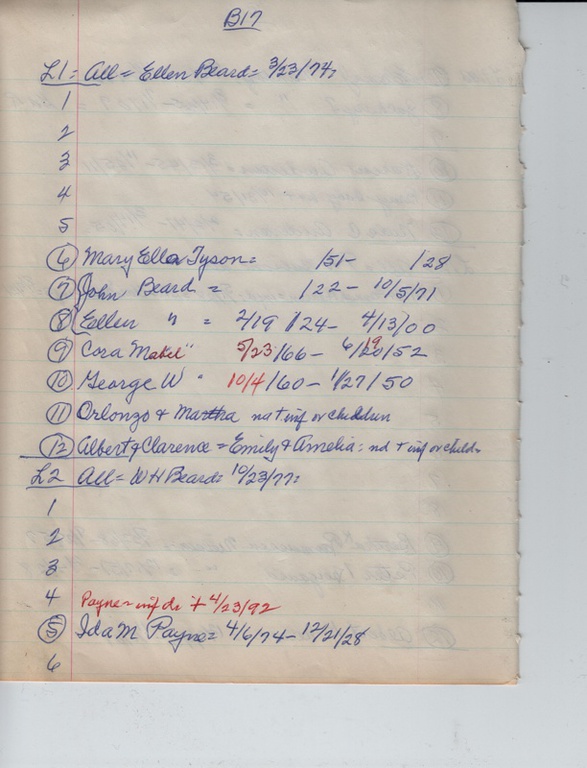 B17
L1 = All = Ellen Beard = 3/23/74.
1
2
3
4
5
6 Mary Ella Tyson = /51- /28
7 John Beard = /22 - 10/5/71
8 Ellen " = 2/19/24 - 4/13/00
9 Cora "Mabel" 5/23/66 - 6/20/52 19
10 George W " 10/4/60 - 1/27/50
11 Orlonzo & Martha no + inf or children
12 Albert & Clarence = Emily & Amelia: no + inf or child.
L2 All = W H Beard = 10/23/77:
1
2
3
4 Payne = inf di + 4/23/92
5 Ida M Payne = 4/6/74 - 12/21/28
6